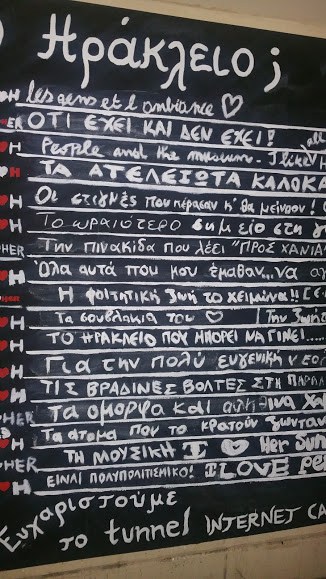 Ηράκλειο;
H les gens et l'ambiance ♡
ER ΟΤΙ ΕΧΕΙ ΚΑΙ ΔΕΝ ΕΧΕΙ!
H People and the museum. I like
H ΤΑ ΑΤΕΛΕΙΩΤΑ ΚΑΛΟΚΑ
H Οι στιγμές που πέρασαν κ' θα μείνουν!
H Το ωραιότερο σημείο στη γ
HER Την πινακίδα που λέει "ΠΡΟΣ ΧΑΝΙΑ
H Όλα αυτά που μου έμαθαν...να αγ
Η φοιτητική ζωή το χειμώνα!!
H Τα σουβλάκια του ♡ Την ζωή
H ΤΟ ΗΡΑΚΛΕΙΟ ΠΟΥ ΜΠΟΡΕΙ ΝΑ ΓΙΝΕΙ.....
H Για την πολύ ευγενική νεο
H ΤΙΣ ΒΡΑΔΙΝΕΣ ΒΟΛΤΕΣ ΣΤΗ ΠΑΡΑΛ
HER Τα όμορφα και αληθινα χα
H Τα άτομα που το κρατούν ζωνταν
HER ΤΗ ΜΟΥΣΙΚΗ I ♥ Her Sun
H ΕΙΝΑΙ ΠΟΛΥΠΟΛΙΤΙΣΜΙΚΟ! I LOVE pe
Ευχαριστούμε
το tunnel INTERNET CA